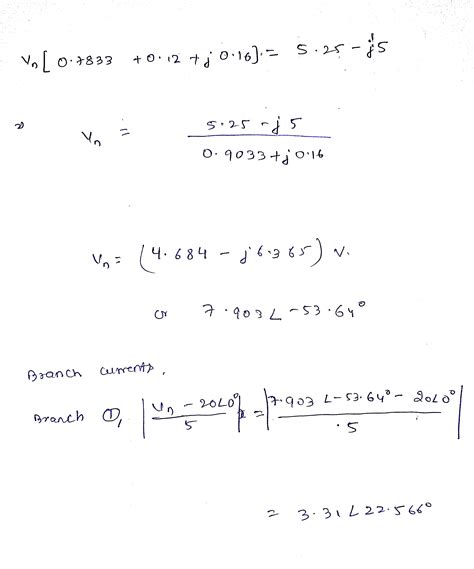 Vn [ 0.7833 + 0.12 + j 0.16 ] = 5.25 - j5
⇒ Vn = 5.25 - j 5
0.9033 + j0.16
Vn = (4.684 - j 6.365) V.
or 7.903 ∠ -53.64°
Branch currents,
Branch ①, | Vn - 20∠0° / 5 | = | 7.903 ∠-53.64° - 20∠0° / 5 |
= 3.31 ∠ 22.566°